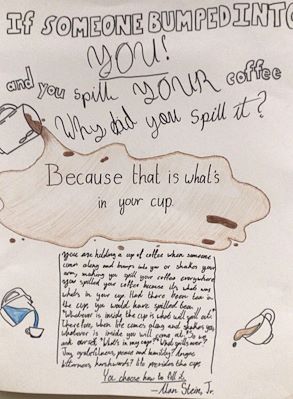 IF SOMEONE BUMPED INTO
YOU!
and you spill YOUR coffee
Why did you spill it?
Because that is what's
in your cup.
you are holding a cup of coffee when someone
comes along and bumps into you or shakes your
arm, making you spill your coffee everywhere
you spilled your coffee because it's what was
what's in your cup. Had there been tea in
the cup, you would have spilled tea.
"Whatever is inside the cup is what will spill out"
Therefore, when life comes along and shakes you,
whatever is inside you will come out. So we
ask ourself "What's in my cup?" "What spills over?"
Joy, gratefulness, peace and humility? Anger,
bitterness, harsh words? life provides the cup
You choose how to fill it.